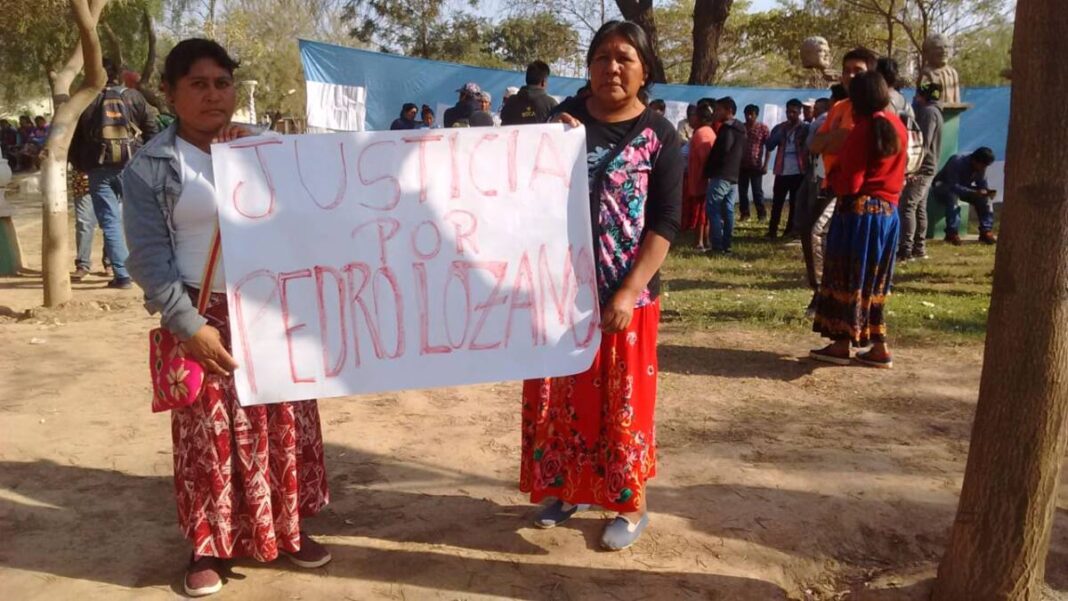 JUSTICIA
POR
PEDRO LOZANO